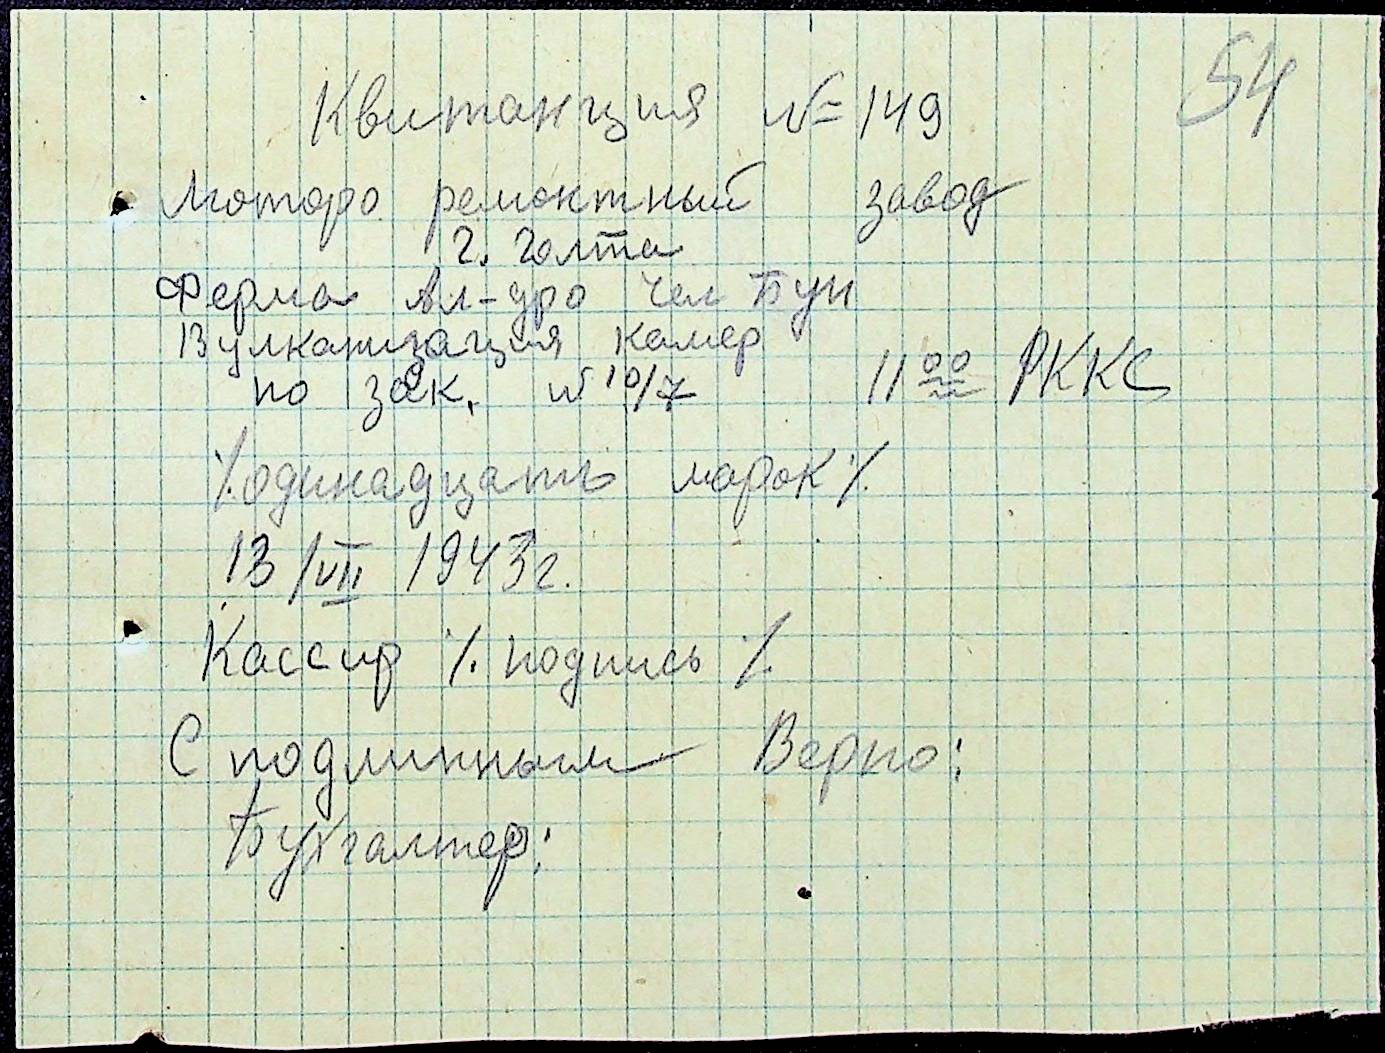 54
Квитанция №=149
Моторо ремонтный завод
г. Голта
Ферма Ал-дро чел Бун
Вулканизация камер
по зак. № 10/7 11 00 РККС
٪ одинадцать марок ٪
13/VII 1943г.
Кассир ٪ подпись ٪
С подлинным Верно:
Бухгалтер: